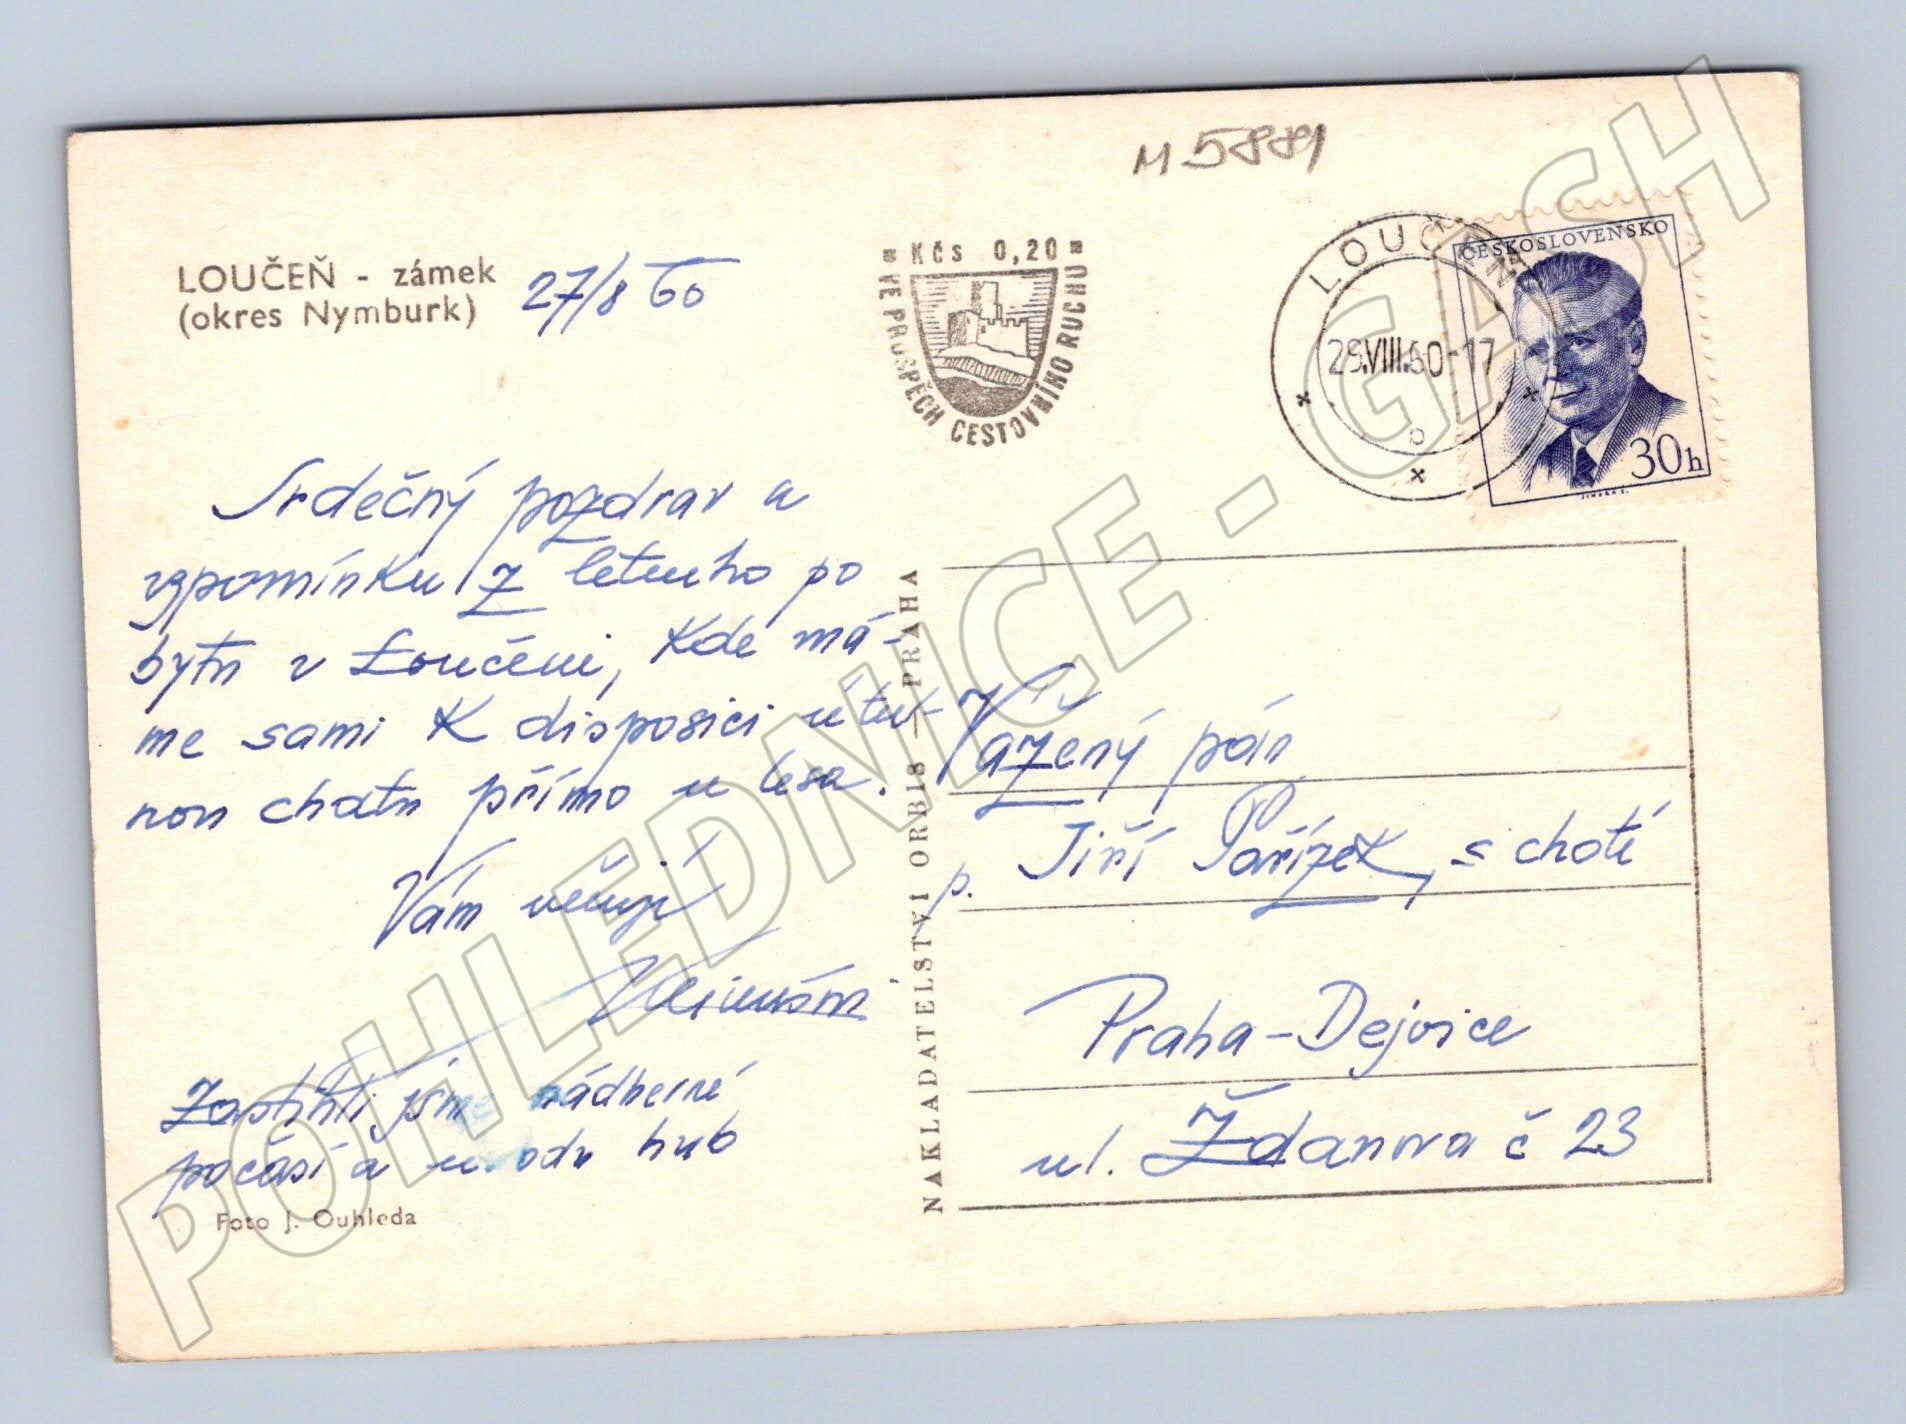 M 5881
LOUČEŇ - zámek
(okres Nymburk)
27/8 60
Kčs 0,20
VE PROSPĚCH CESTOVNÍHO RUCHU
LOUČEŇ
28.VIII.60-17
b
ČESKOSLOVENSKO
30h
Srdečný pozdrav a
vzpomínku z letního po
bytu v Loučeni, kde má-
me sami k disposici útul-
nou chatu přímo u lesa.
Vám věnují
Zastihli jsme nádherné
počasí a úrodu hub
Foto J. Ouhleda
NAKLADATELSTVÍ ORBIS — PRAHA
Vážený pán
p. Jiří Pařízek, s chotí
Praha-Dejvice
ul. Ždanova č 23
POHLEDNICE - GASH